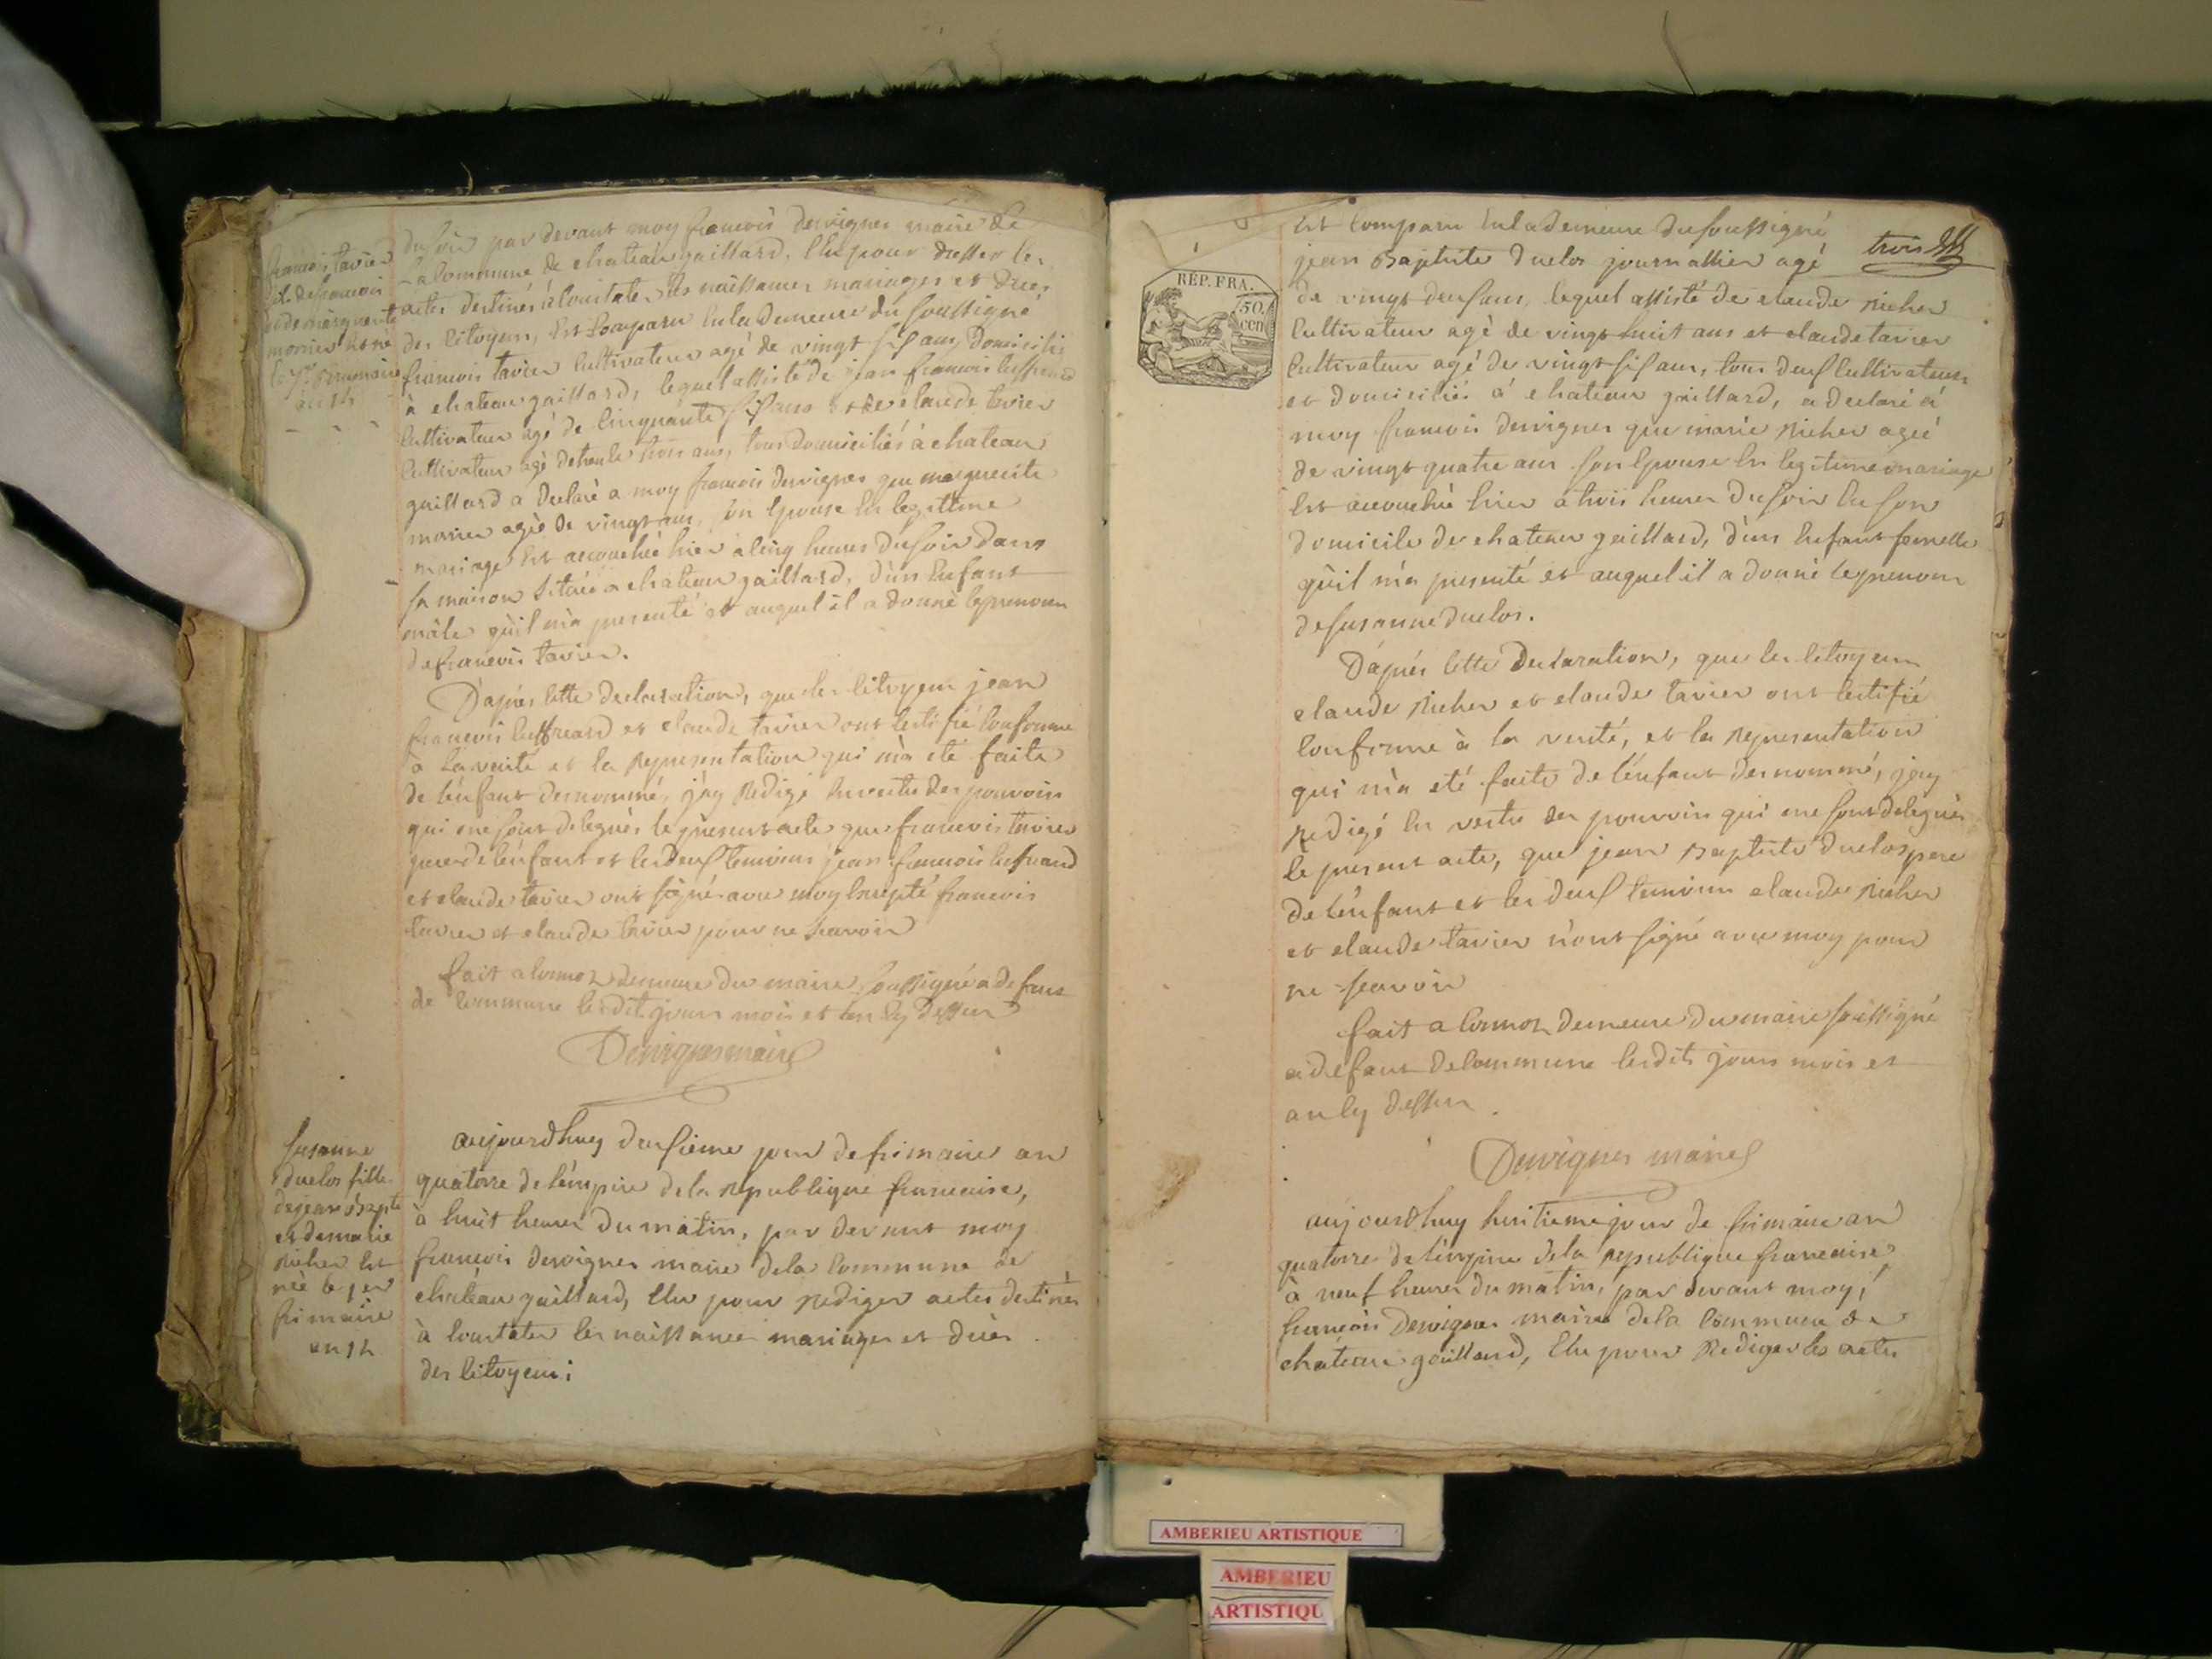 francois tavier
fils de francois
et de marguerite
monier est né
le 7e brumaire
an 14
du soir par devant moy francois dervignes maire de
la commune de chateaugaillard, Elu pour dresser les
actes destinés à Constater les naissances mariages et duès
des Citoyens, Est Comparu En la demeure du soussigné
francois tavier Cultivateur agé de vingt sis ans Domicilié
à chateaugaillard, lequel assisté de jean francois
Cultivateur agé de Cinquante sis ans et de claude tavier
Cultivateur agé de trente trois ans, tous domiciliés à chateau
gaillard a declaré a moy francois dervignes que marguerite
monier agée de vingt ans, son Epouse En legittime
mariage Est accouchée hier à Cinq heures du soir dans
sa maison situèe a chateaugaillard, d'un Enfant
mâle qu'il m'a presenté et auquel il a donné le prenom
de francois tavier.
D'aprés Cette declaration, que les Citoyens jean
francois et claude tavier ont Certifié Conforme
à la verité et la Representation qui m'a eté faite
de l'énfant denommé, j'ay Redigé En vertu des pouvoirs
qui me sont delegués le present acte que francois tavier
pere de l'énfant et les deus temoins jean francois
et claude tavier ont signé avec moy Excepté francois
tavier et claude tavier pour ne scavoir
fait a Cormoz demeure du maire soussigné a defaut
de Commune lesdit jours mois et an Cy dessus
Dervignes maire
susanne
duclos fille
de jean Bapte
et de marie
Richer Est
née le 1er
frimaire
an 14
aujourdhuy deusieme jour de frimaire an
quatorze de l'émpire de la Republique francaise,
à huit heures du matin, par devant moy
francois dervignes maire de la Commune de
chateau gaillard, Elu pour Rediger actes destinés
à Constater les naissances mariages et duès
des Citoyens;
RÉP. FRA.
50.
cen
trois
Est Comparu En la demeure du soussigné
jean Baptiste duclos journallier agé
de vingt deus ans, lequel assisté de claude Richer
Cultivateur agé de vingt huit ans et claude tavier
Cultivateur agé de vingt sis ans, tous deus Cultivateurs
et domiciliés à chateau gaillard, a declaré à
moy francois dervignes que marie Richer agée
de vingt quatre ans son Epouse En legitime mariage
Est accouchée hier à trois heures du soir En son
domicile de chateau gaillard, d'un Enfant femelle
qu'il m'a presenté et auquel il a donné le prenom
de susanne duclos.
D'aprés Cette declaration, que les Citoyens
claude Richer et claude tavier ont Certifié
Conforme à la verité, et la Representation
qui m'a eté faite de l'énfant denommé, j'ay
Redigé En vertu des pouvoirs qui me sont delegués
le present acte, que jean Baptiste duclos pere
de l'énfant et les deus temoins claude Richer
et claude tavier n'ont signé avec moy pour
ne scavoir
fait a Cormoz demeure du maire soussigné
a defaut de Commune lesdits jours mois et
an Cy dessus.
Dervignes maire
aujourdhuy huitieme jour de frimaire an
quatorze de l'émpire de la Republique francaise,
à neuf heures du matin, par devant moy,
francois Dervignes maire de la Commune de
chateau gaillard, Elu pour Rediger les actes
AMBERIEU ARTISTIQUE
AMBERIEU
ARTISTIQU